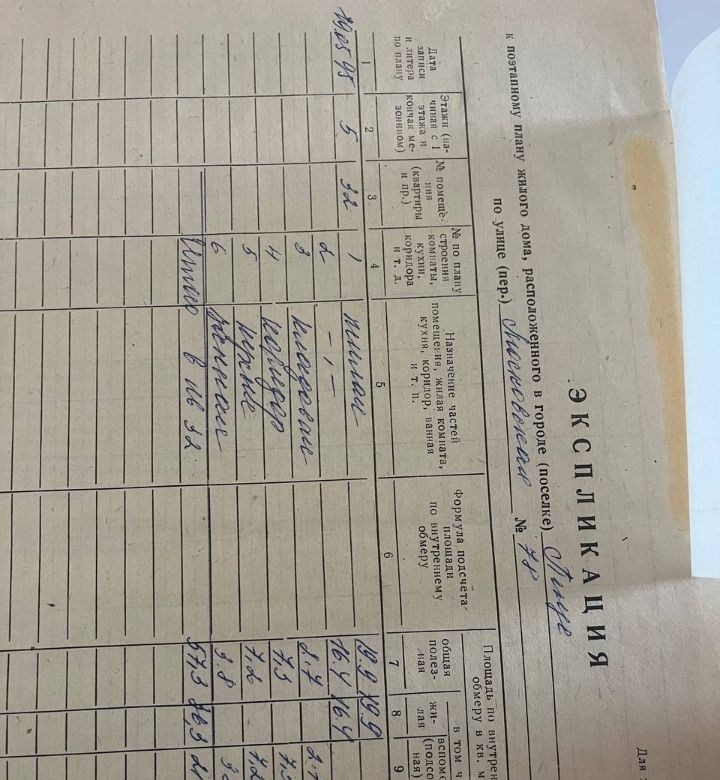 Для
ЭКСПЛИКАЦИЯ
к поэтапному плану жилого дома, расположенного в городе (поселке)
по улице (пер.) № 78
Дата записи и литера по плану
Этажи (начиная с 1 этажа и кончая мезонином)
№ помещения (квартиры и пр.)
№ по плану строения комнаты, кухни, коридора и т. д.
Назначение частей помещения, жилая комната, кухня, коридор, ванная и т. п.
Формула подсчета площади по внутреннему обмеру
Площадь по внутрен
обмеру в кв. м
общая полезная
в том ч
жилая
вспомо
(подсо
ная)
1 2 3 4 5 6 7 8 9
19.05.95 5 32 1 жилая 19.9 19.9
2 -,,- 16.4 16.4
3 кладовая 2.7
4 коридор 7,3
5 кухня 7.2 - 7.2
6 ванная 3.8
Итого в кв 32. 57,3 36,3